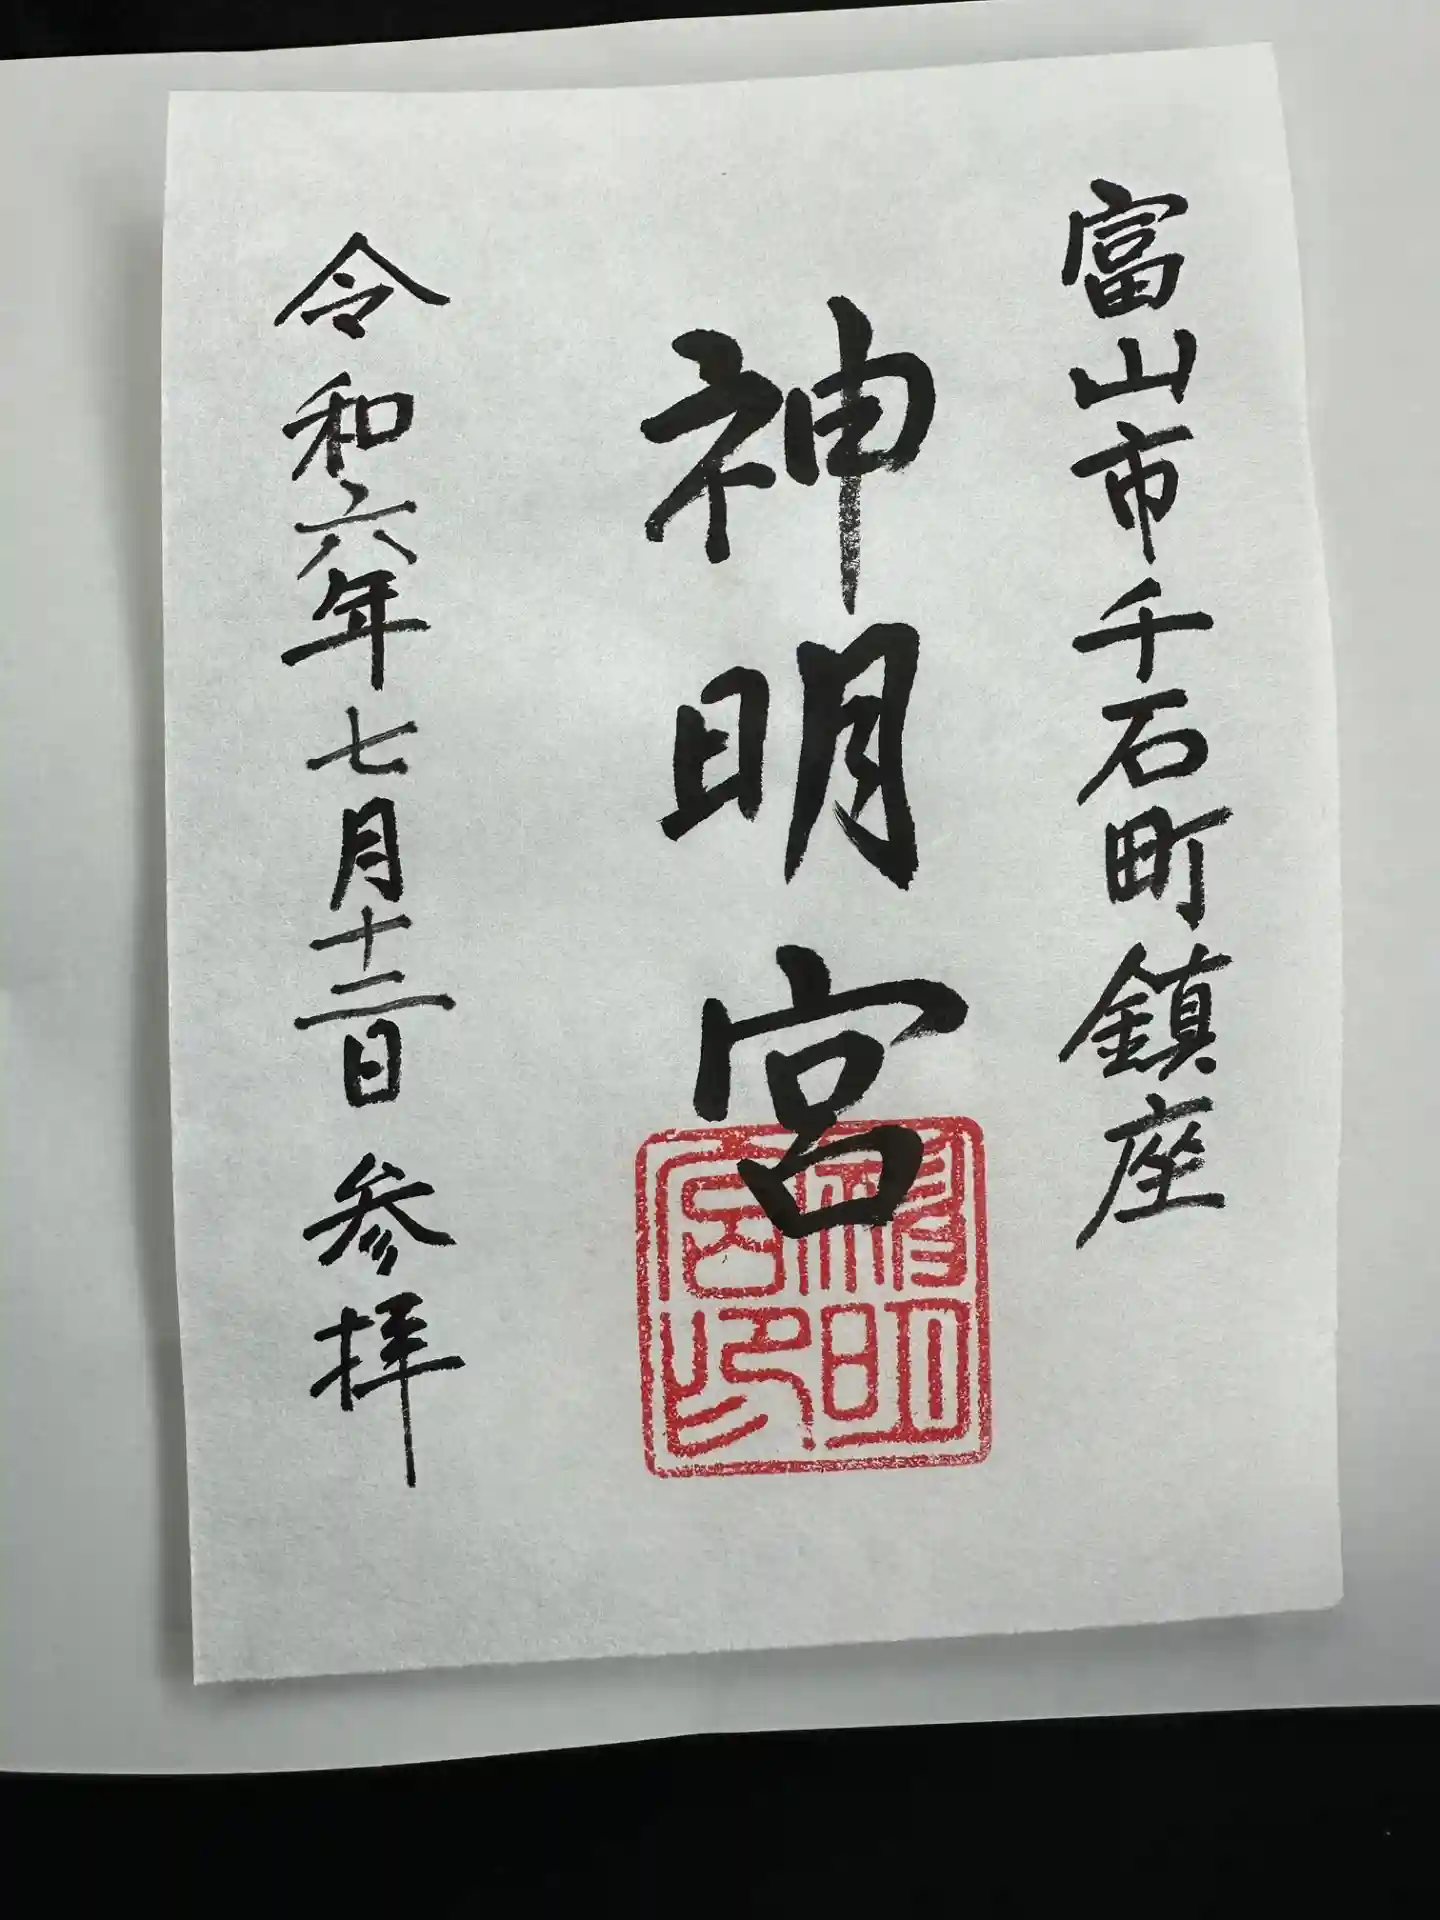 富山市千石町鎮座
神明宮
神明宮印
令和六年七月十二日参拝